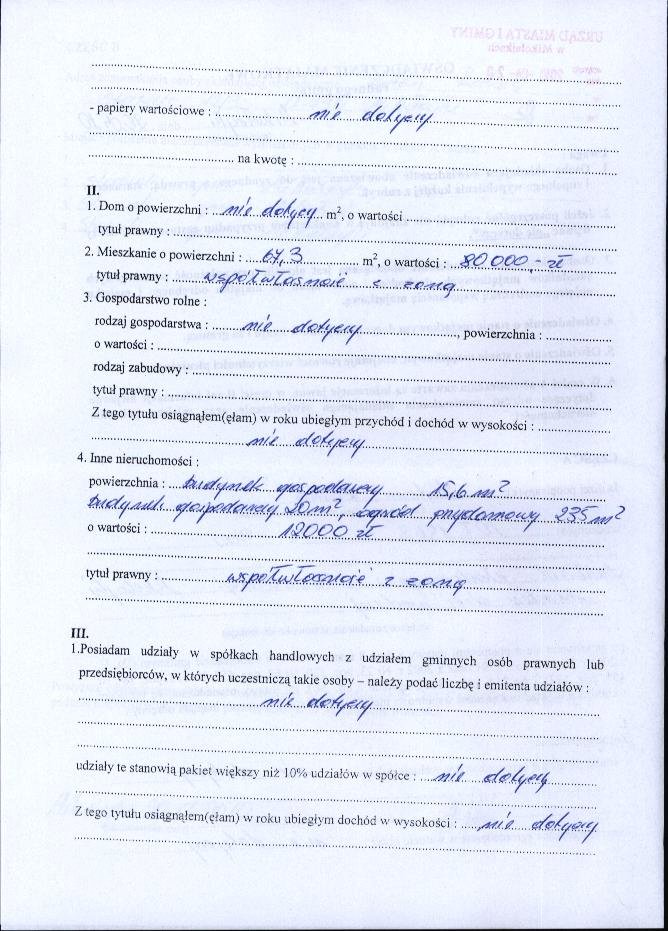 - papiery wartościowe : nie dotyczy
na kwotę :
II.
1. Dom o powierzchni : nie dotyczy m², o wartości
tytuł prawny :
2. Mieszkanie o powierzchni : 67,3 m², o wartości : 80000,- zł
tytuł prawny : współwłasność z żoną
3. Gospodarstwo rolne :
rodzaj gospodarstwa : nie dotyczy, powierzchnia :
o wartości :
rodzaj zabudowy :
tytuł prawny :
Z tego tytułu osiągnąłem(ęłam) w roku ubiegłym przychód i dochód w wysokości :
nie dotyczy
4. Inne nieruchomości :
powierzchnia : budynek gospodarczy 15,6 m²
budynek gospodarczy 20 m², ogród przydomowy 235 m²
o wartości : 12000 zł
tytuł prawny : współwłasność z żoną
III.
1.Posiadam udziały w spółkach handlowych z udziałem gminnych osób prawnych lub
przedsiębiorców, w których uczestniczą takie osoby – należy podać liczbę i emitenta udziałów :
nie dotyczy
udziały te stanowią pakiet większy niż 10% udziałów w spółce : nie dotyczy
Z tego tytułu osiągnąłem(ęłam) w roku ubiegłym dochód w wysokości : nie dotyczy